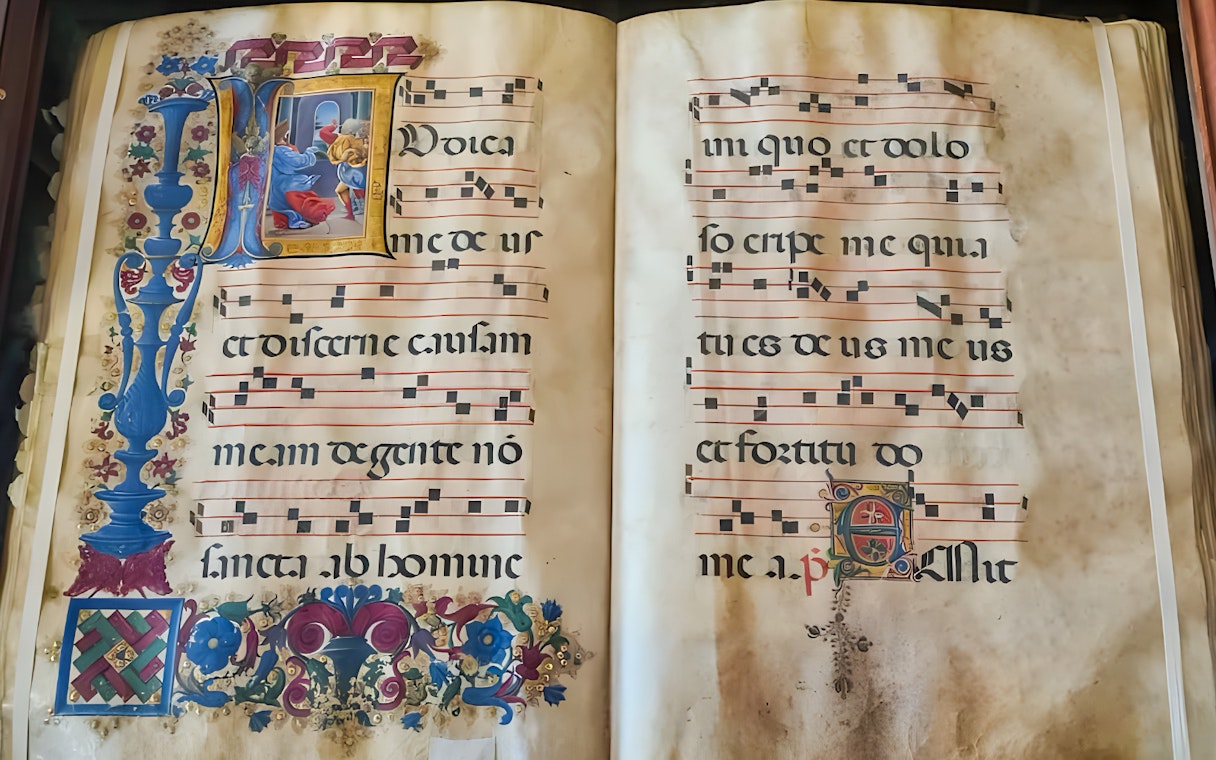 IVdica
me deus
et discerne causam
meam de gente nō
sancta ab homine
ini quo et dolo
so eripe me quia
tu es deus meus
et fortitu do
mea. p̄. EMit